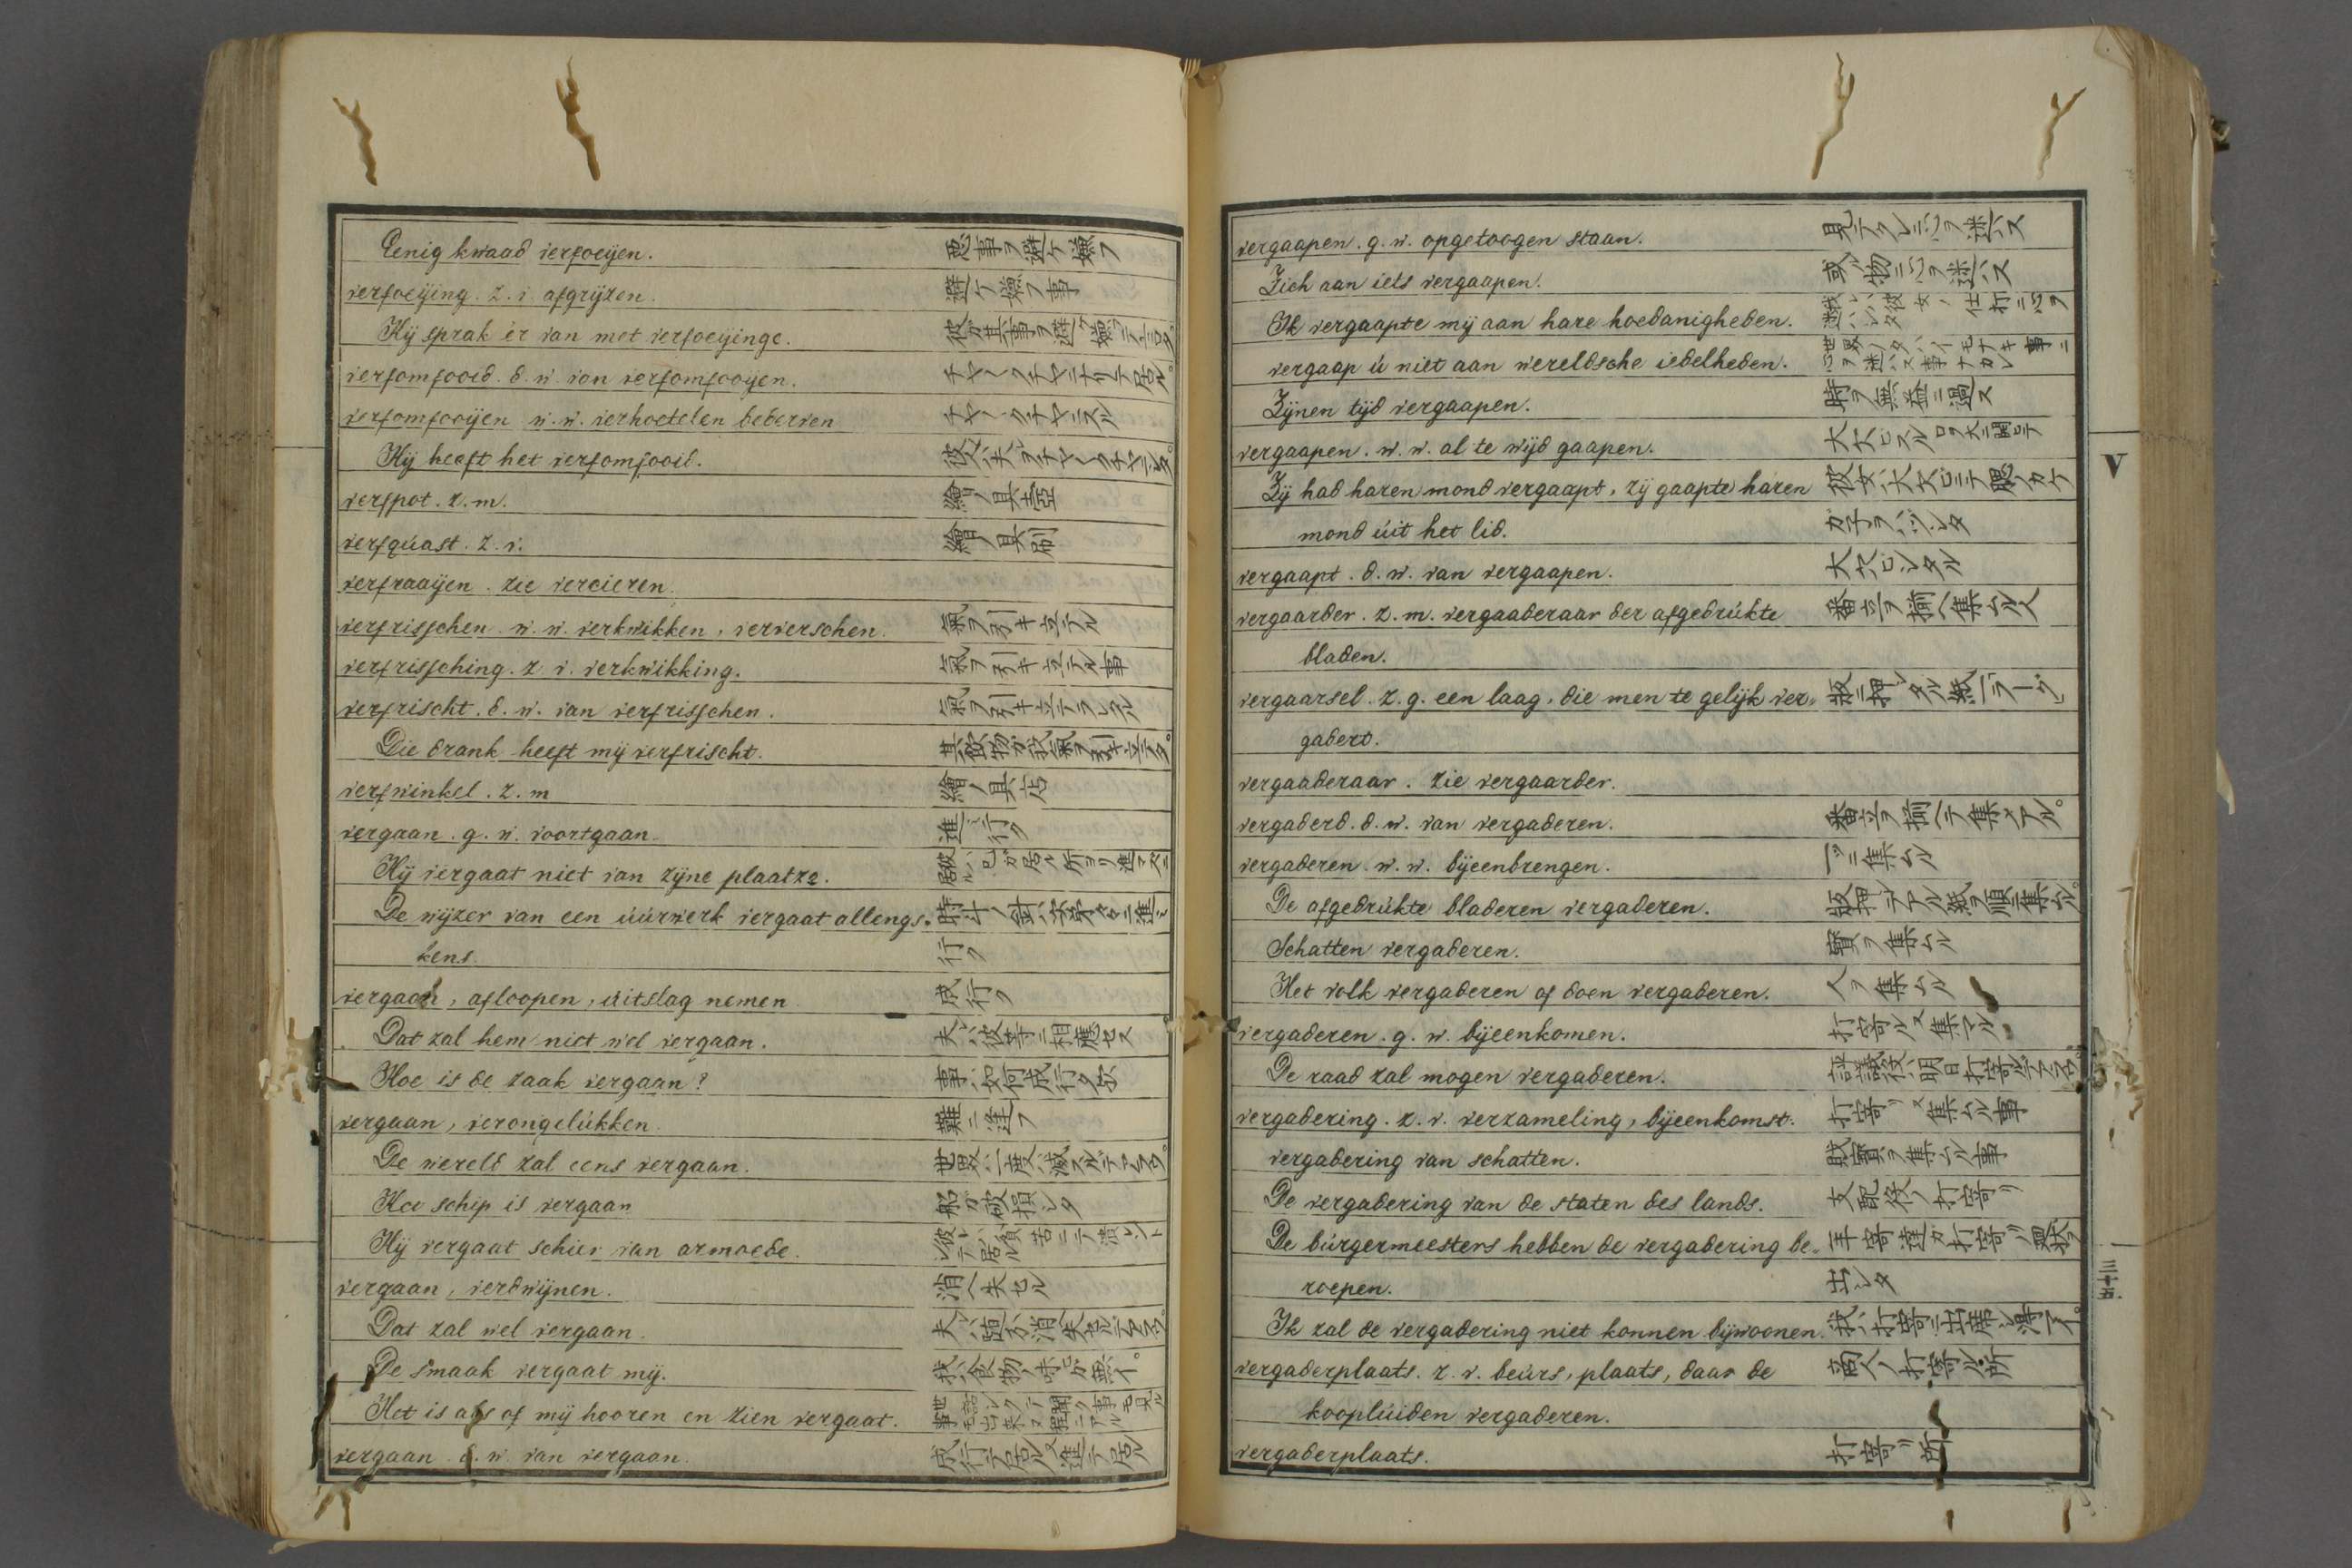 Eenig kwaad verfoeijen. 悪事ヲ避ケ嫌フ
verfoeijing. z. v. afgrijzen. 避ケ嫌フ事
Hij sprak er van met verfoeijinge.
verfomfooid. d. w. van verfomfooijen.
verfomfooijen w. w. verhoetelen bederven
Hij heeft het verfomfooid.
verfpot. z. m. 繪ノ具壺
verfquast. z. v. 繪ノ具刷
verfraaijen. zie vercieren.
verfrisschen. w. w. verkwikken, ververschen. 氣ヲ引キ立テル
verfrissching. z. v. verkwikking. 氣ヲ引キ立テル事
verfrischt. d. w. van verfrisschen. 氣ヲ引キ立テラレタル
Die drank heeft mij verfrischt. 其飲物ガ我氣ヲ引キ立テタ。
verfwinkel. z. m 繪ノ具店
vergaan. g. w. voortgaan. 進ミ行ク
Hij vergaat niet van zijne plaatze.
De wijzer van een úúrwerk vergaat allengs-
kens. 行ク
vergaan, afloopen, úitslag nemen 成行ク
Dat zal hem niet wel vergaan.
Hoe is de zaak vergaan? 事ハ如何成行タ歟
vergaan, verongelúkken. 難ニ逢フ
De wereld zal eens vergaan. 世界ハ一度ハ滅スルデアラフ。
Het schip is vergaan 船ガ破損シタ
Hij vergaat schier van armoede.
vergaan, verdwijnen. 消ヘ失セル
Dat zal wel vergaan.
De smaak vergaat mij.
Het is als of mij hooren en zien vergaat.
vergaan. d. w. van vergaan.
vergaapen. g. w. opgetoogen staan.
Zich aan iets vergaapen. 或ル物ニ心ヲ迷ハス
Ik vergaapte mij aan hare hoedanigheden.
vergaap ú niet aan wereldsche iedelheden.
Zijnen tijd vergaapen. 時ヲ無益ニ過ス
vergaapen. w. w. al te wijd gaapen.
Zij had haren mond vergaapt, zij gaapte haren
mond úit het lid.
vergaapt. d. w. van vergaapen.
vergaarder. z. m. vergaaderaar der afgedrúkte 番立ヲ揃ヘ集ムル人
bladen.
vergaarsel. z. g. een laag, die men te gelijk ver-
gadert.
vergaaderaar. zie vergaarder.
vergaderd. d. w. van vergaderen. 番立ヲ揃ヘテ集メテアル。
vergaderen. w. w. bijeenbrengen. 一ツニ集ムル
De afgedrúkte bladeren vergaderen.
Schatten vergaderen. 寳ヲ集ムル
Het volk vergaderen of doen vergaderen. 人ヲ集ムル
vergaderen. g. w. bijeenkomen. 打寄ル又集マル
De raad zal mogen vergaderen.
vergadering. z. v. verzameling, bijeenkomst. 打寄リ又集ムル事
vergadering van schatten. 財寳ヲ集ムル事
De vergadering van de staten des lands. 支配役ノ打寄リ
De búrgermeesters hebben de vergadering be-
roepen. 出シタ
Ik zal de vergadering niet konnen bijwoonen.
vergaderplaats. z. v. beúrs, plaats, daar de 商人ノ打寄ル所
kooplúiden vergaderen.
vergaderplaats. 打寄リ所
V
三十五